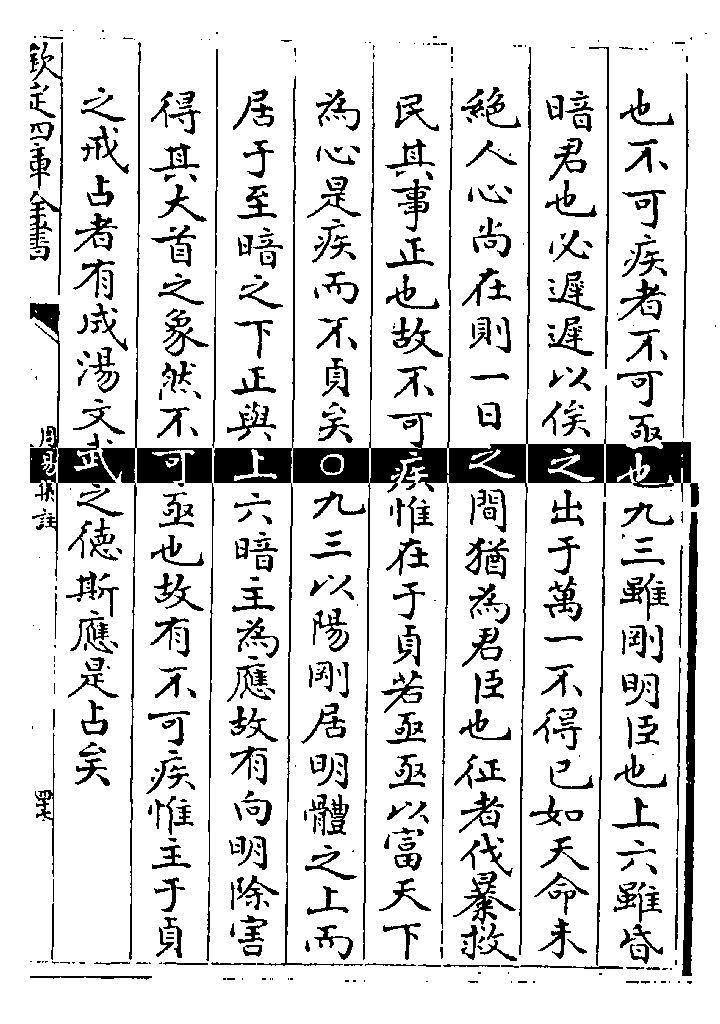 也不可疾者不可亟也九三雖剛明臣也上六雖昏
暗君也必遲遲以俟之出于萬一不得已如天命未
絕人心尚在則一日之間猶為君臣也征者伐暴救
民其事正也故不可疾惟在于貞若亟亟以富天下
為心是疾而不貞矣○九三以陽剛居明體之上而
居于至暗之下正與上六暗主為應故有向明除害
得其大首之象然不可亟也故有不可疾惟主于貞
之戒占者有成湯文武之德斯應是占矣
欽定四庫全書
周易集註